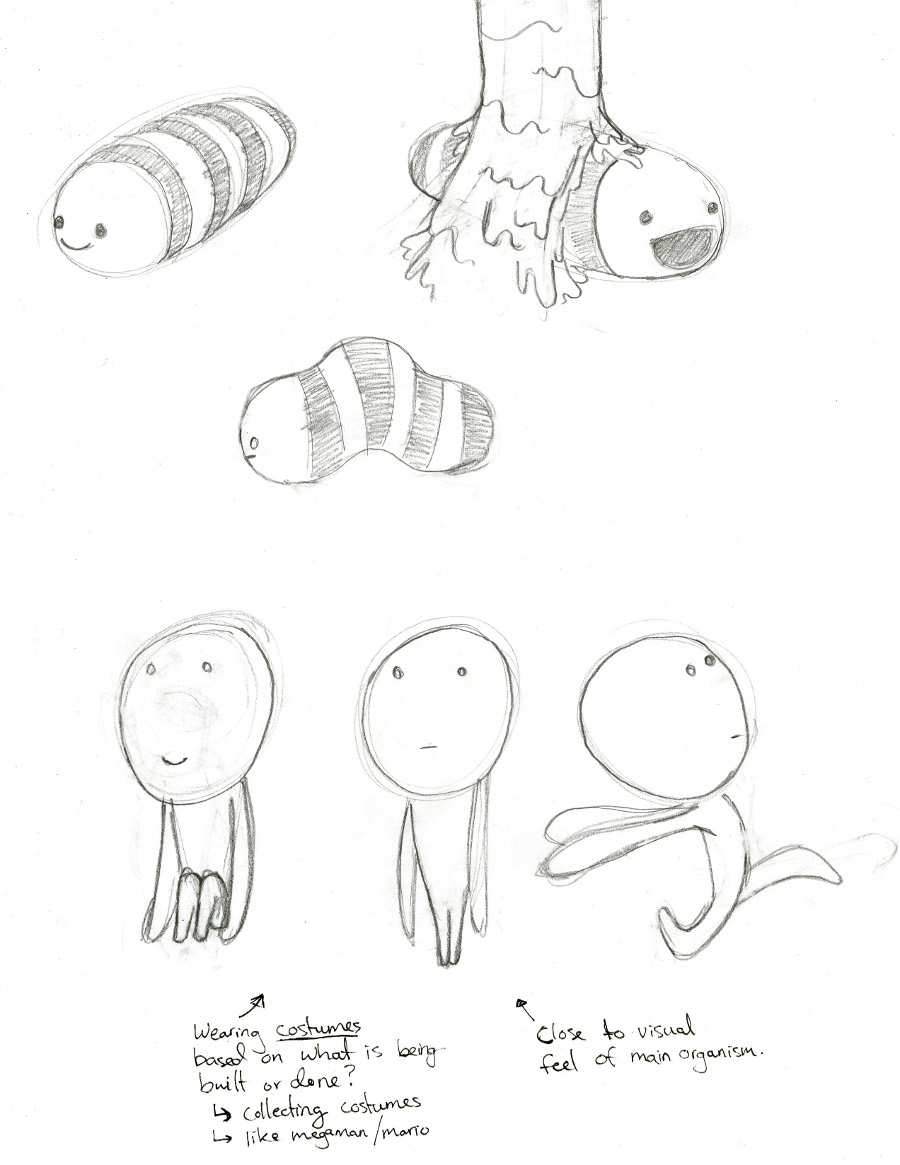 Wearing costumes
based on what is being
built or done?
↳ collecting costumes
↳ like megaman/mario
Close to visual
feel of main organism.